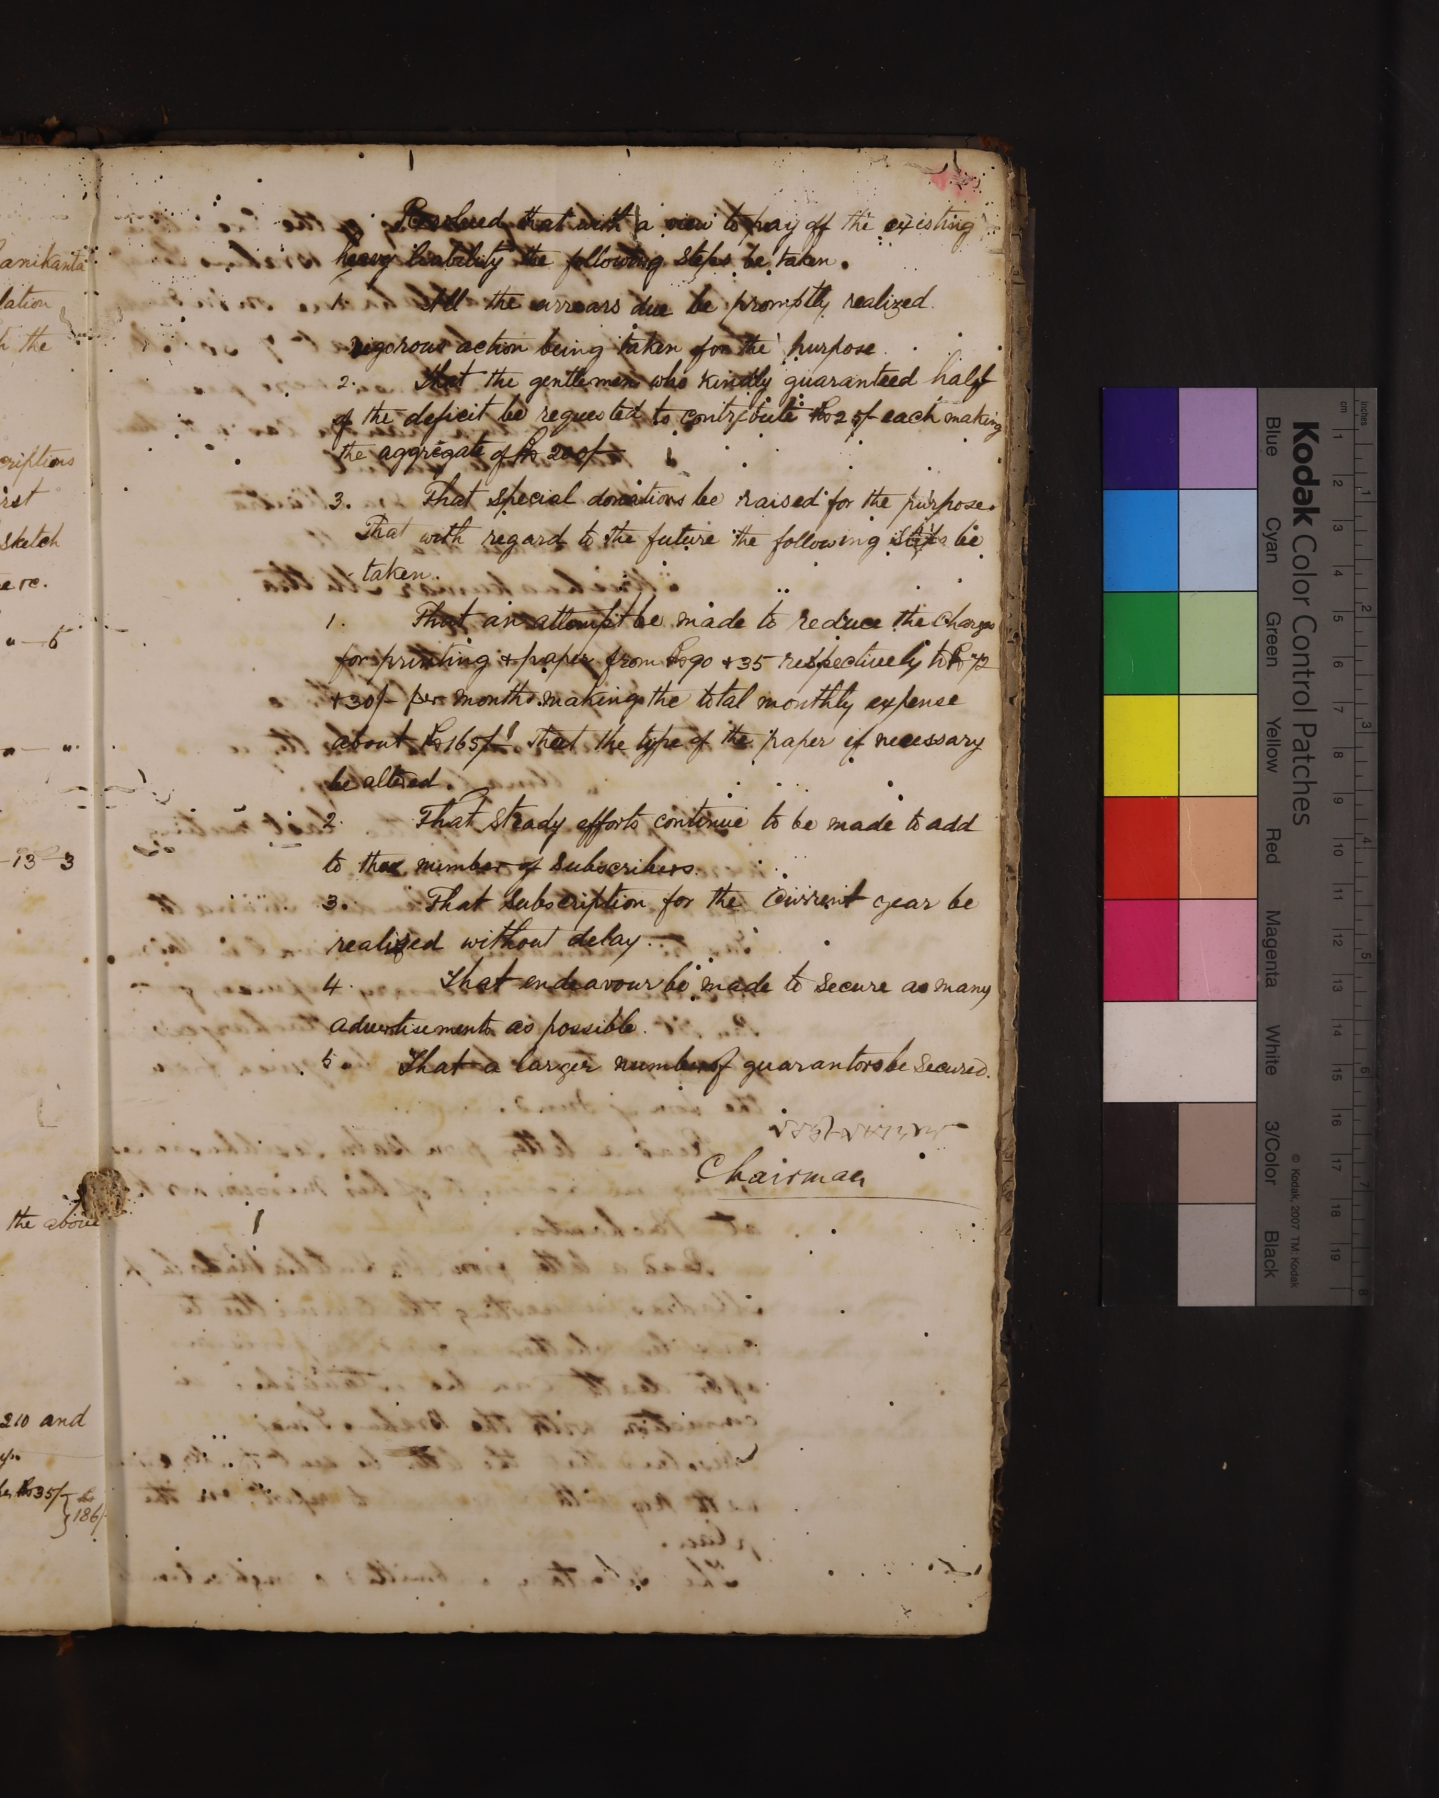 anikanta
lation
h the
criptions
rst
sketch
ere.
" — 6
" — "
-13-3
the above
210 and
Rs 35/-
Rs
186/-
Resolved that with a view to pay off the existing
heavy liability the following steps be taken.
1. All the arrears due be promptly realized
rigorous action being taken for the purpose.
2. That the gentlemen who kindly guaranteed half
of the deficit be requested to contribute Rs 25/- each making
the aggregate of Rs 200/-
3. That special donations be raised for the purpose.
That with regard to the future the following steps be
taken.
1. That an attempt be made to reduce the charges
for printing & paper from Rs 90 & 35 respectively to Rs 72
& 30/- per month making the total monthly expense
about Rs 165/- That the type of the paper if necessary
be altered.
2. That steady efforts continue to be made to add
to the number of subscribers.
3. That subscription for the current year be
realized without delay.
4. That endeavour be made to secure as many
advertisements as possible.
5 That a larger number of guarantors be secured.
Chairman
Kodak Color Control Patches
Blue Cyan Green Yellow Red Magenta White 3/Color Black
© Kodak, 2007 TM: Kodak
inches 1 2 3 4 5 6 7 8
cm 1 2 3 4 5 6 7 8 9 10 11 12 13 14 15 16 17 18 19